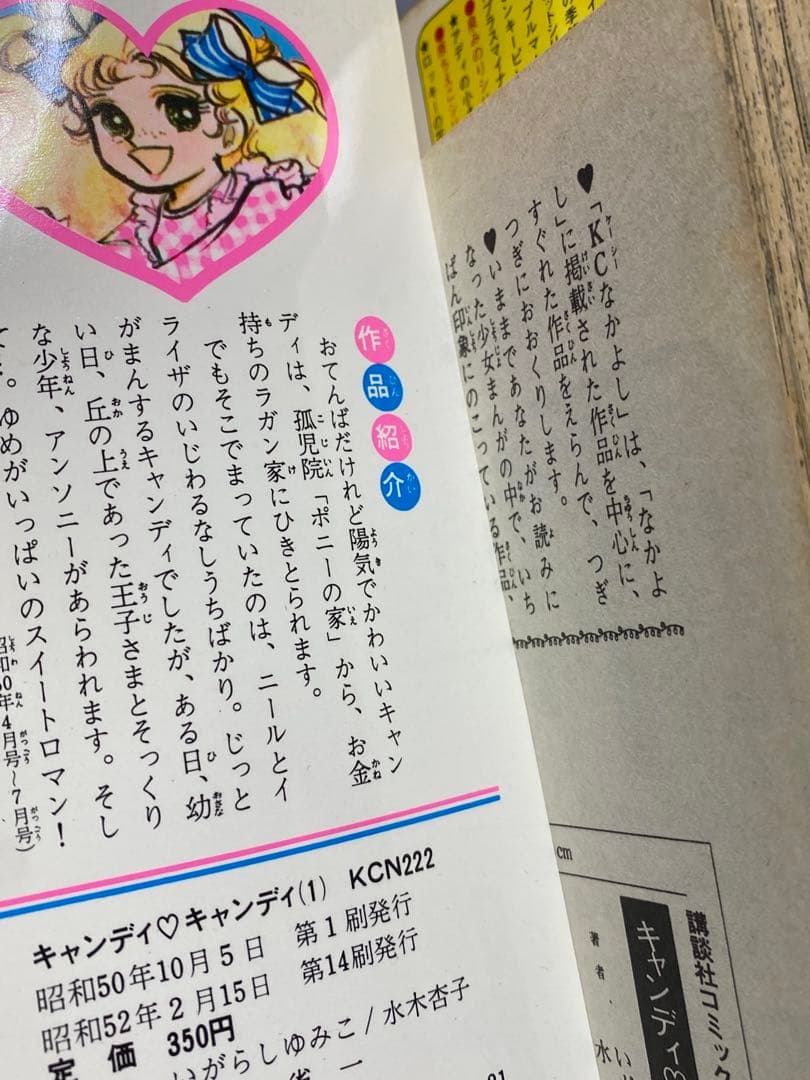 作品紹介
おてんばだけれど陽気でかわいいキャン
ディは、孤児院「ポニーの家」から、お金
持ちのラガン家にひきとられます。
でもそこでまっていたのは、ニールとイ
ライザのいじわるなしうちばかり。じっと
がまんするキャンディでしたが、ある日、幼
い日、丘の上であった王子さまとそっくり
な少年、アンソニーがあらわれます。そし
て…。ゆめがいっぱいのスイートロマン！
昭和50年4月号〜7月号)
キャンディ♡キャンディ(1) KCN222
昭和50年10月5日 第1刷発行
昭和52年2月15日 第14刷発行
定価 350円
いがらしゆみこ/水木杏子
♥「KCなかよし」は、「なかよ
し」に掲載された作品を中心に、
すぐれた作品をえらんで、つぎ
つぎにおおくりします。
♥いままであなたがお読みに
なった少女まんがの中で、いち
ばん印象にのこっている作品、
cm
講談社コミック
キャンディ♡
著者・水